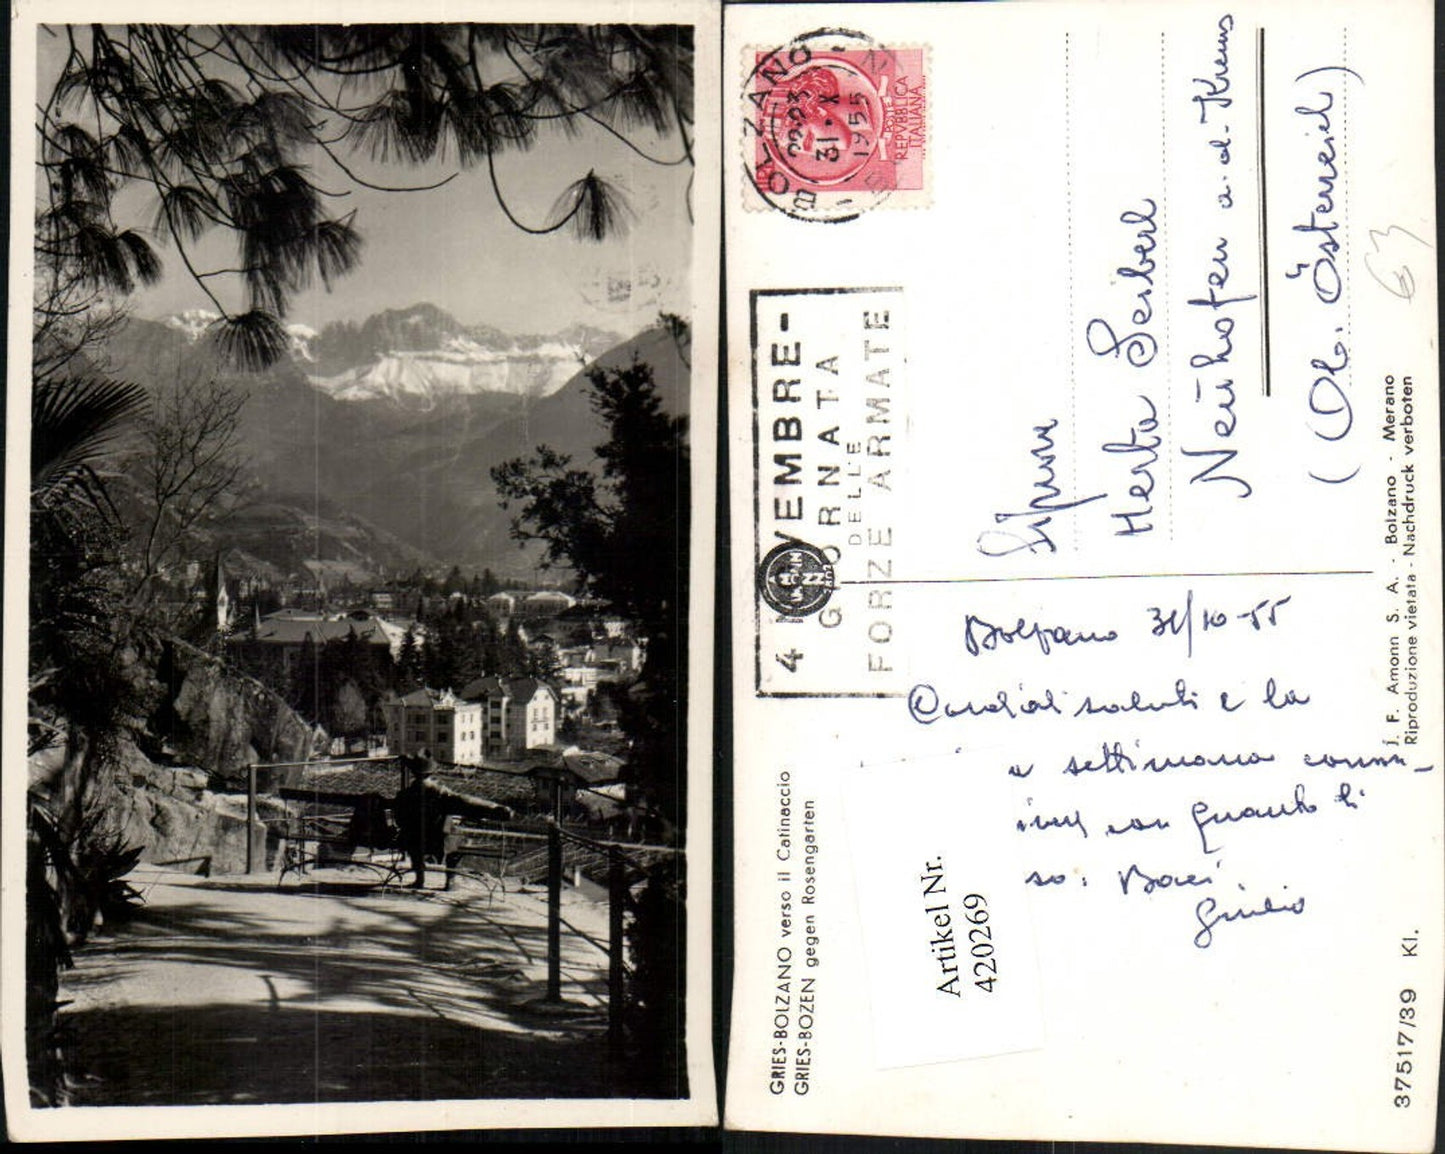 BOLZANO
22-23
31·X
1955
POSTE
REPVBBLICA
ITALIANA
4 NOVEMBRE-
GIORNATA
DELLE
FORZE ARMATE
Herta Seiberl
Neuhofen a.d. Krems
(Ob. Österreich)
63
Bolzano 31/10-55
Cordiali saluti e la
settimana
con quanto ti
so. Baci
Giulio
Artikel Nr.
420269
GRIES-BOLZANO verso il Catinaccio
GRIES-BOZEN gegen Rosengarten
J. F. Amonn S. A. - Bolzano - Merano
Riproduzione vietata - Nachdruck verboten
37517/39 Kl.